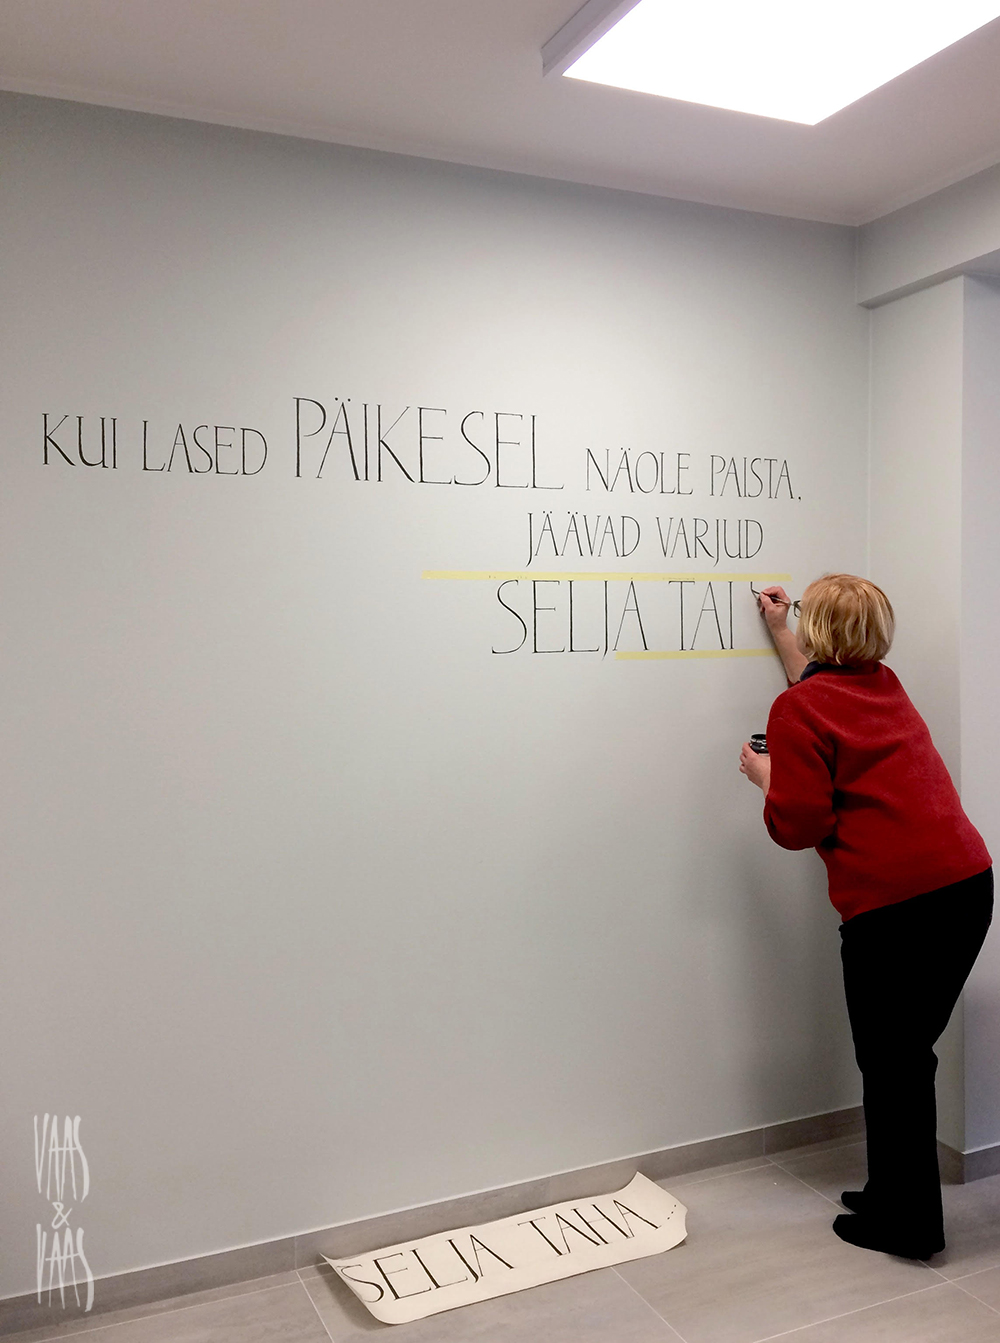 KUI LASED PÄIKESEL NÄOLE PAISTA,
JÄÄVAD VARJUD
SELJA TAI
SELJA TAHA...
VAAS
&
VAAS